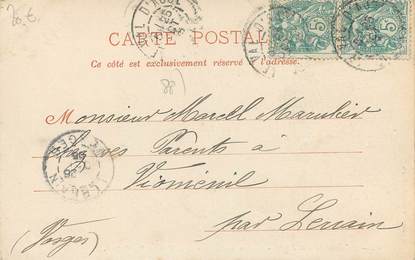 CARTE POSTALE
Ce côté est exclusivement réservé à l'adresse.
Monsieur Marcel
ses Parents à
Vioménil
par Lerrain
(Vosges)